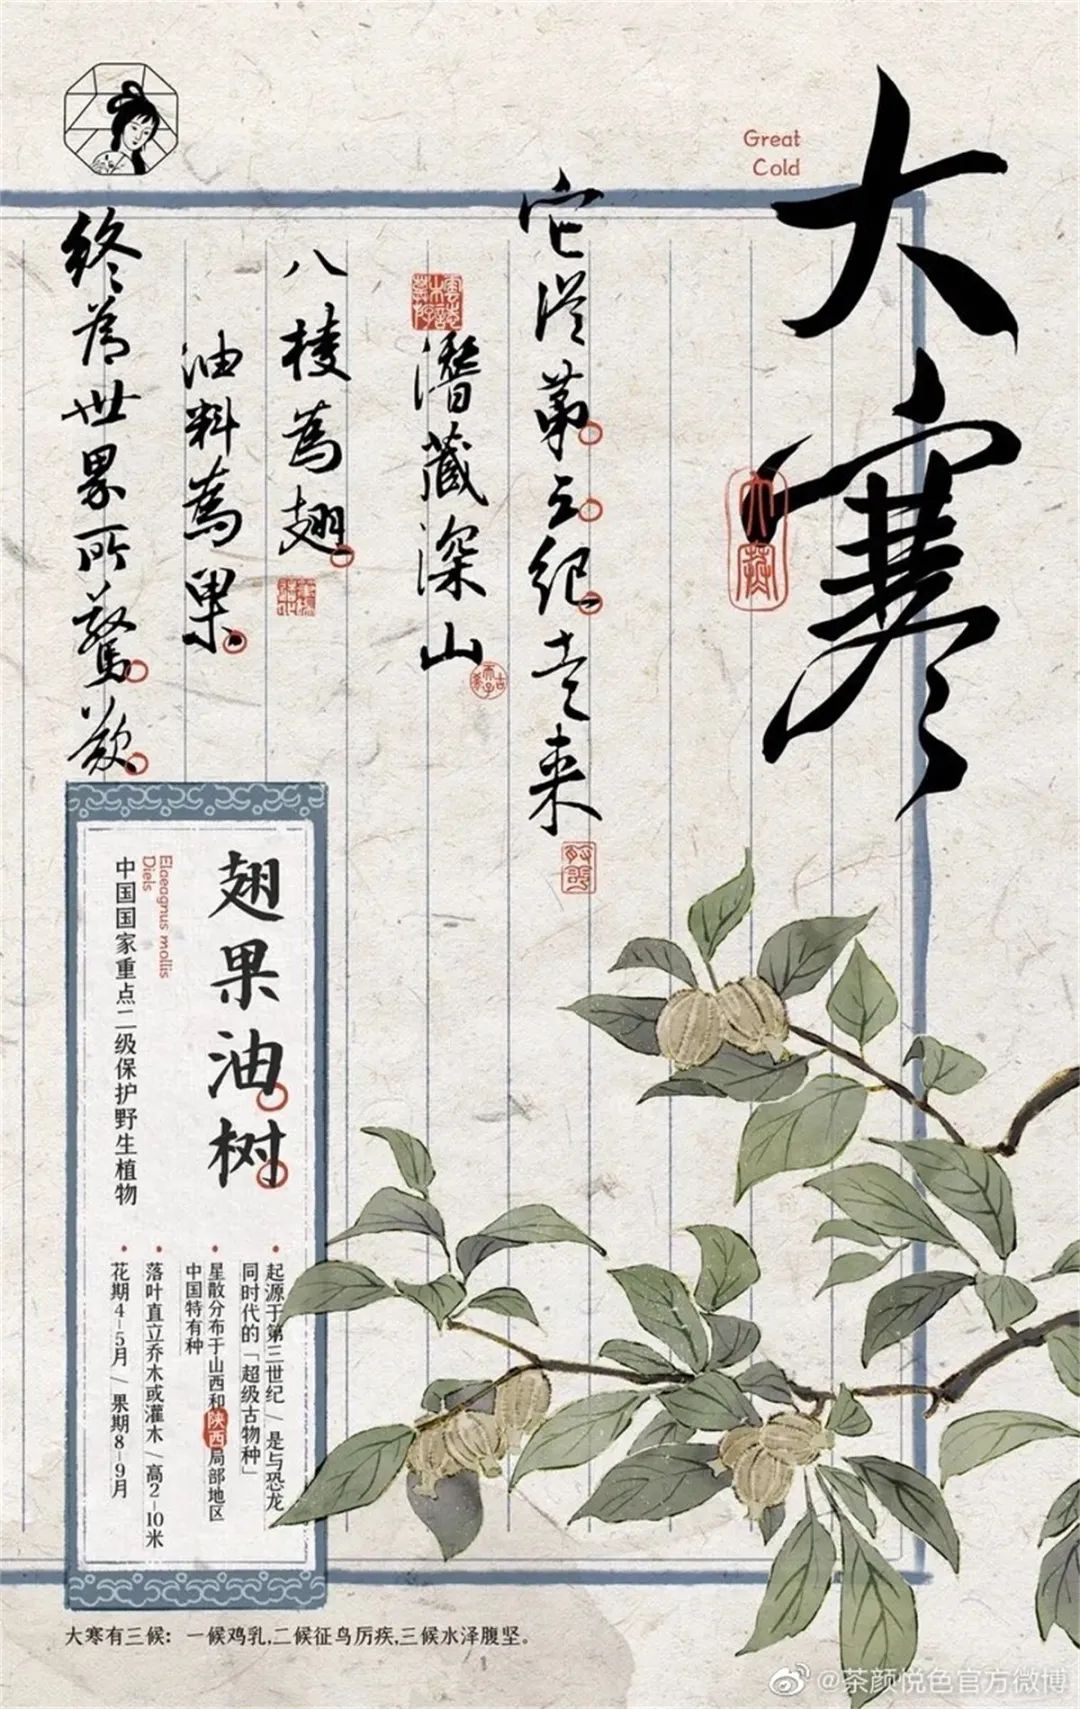 大寒
Great
Cold
它從第三纪走来
潛藏深山
八棱為翅
油料為果
终為世界所驚歎
翅果油树
Elaeagnus mollis
Diels
中国国家重点二级保护野生植物
起源于第三世纪/是与恐龙
同时代的「超级古物种」
星散分布于山西和陕西局部地区
中国特有种
落叶直立乔木或灌木/高2-10米
花期4-5月/果期8-9月
大寒有三候：一候鸡乳,二候征鸟厉疾,三候水泽腹坚。
@茶颜悦色官方微博